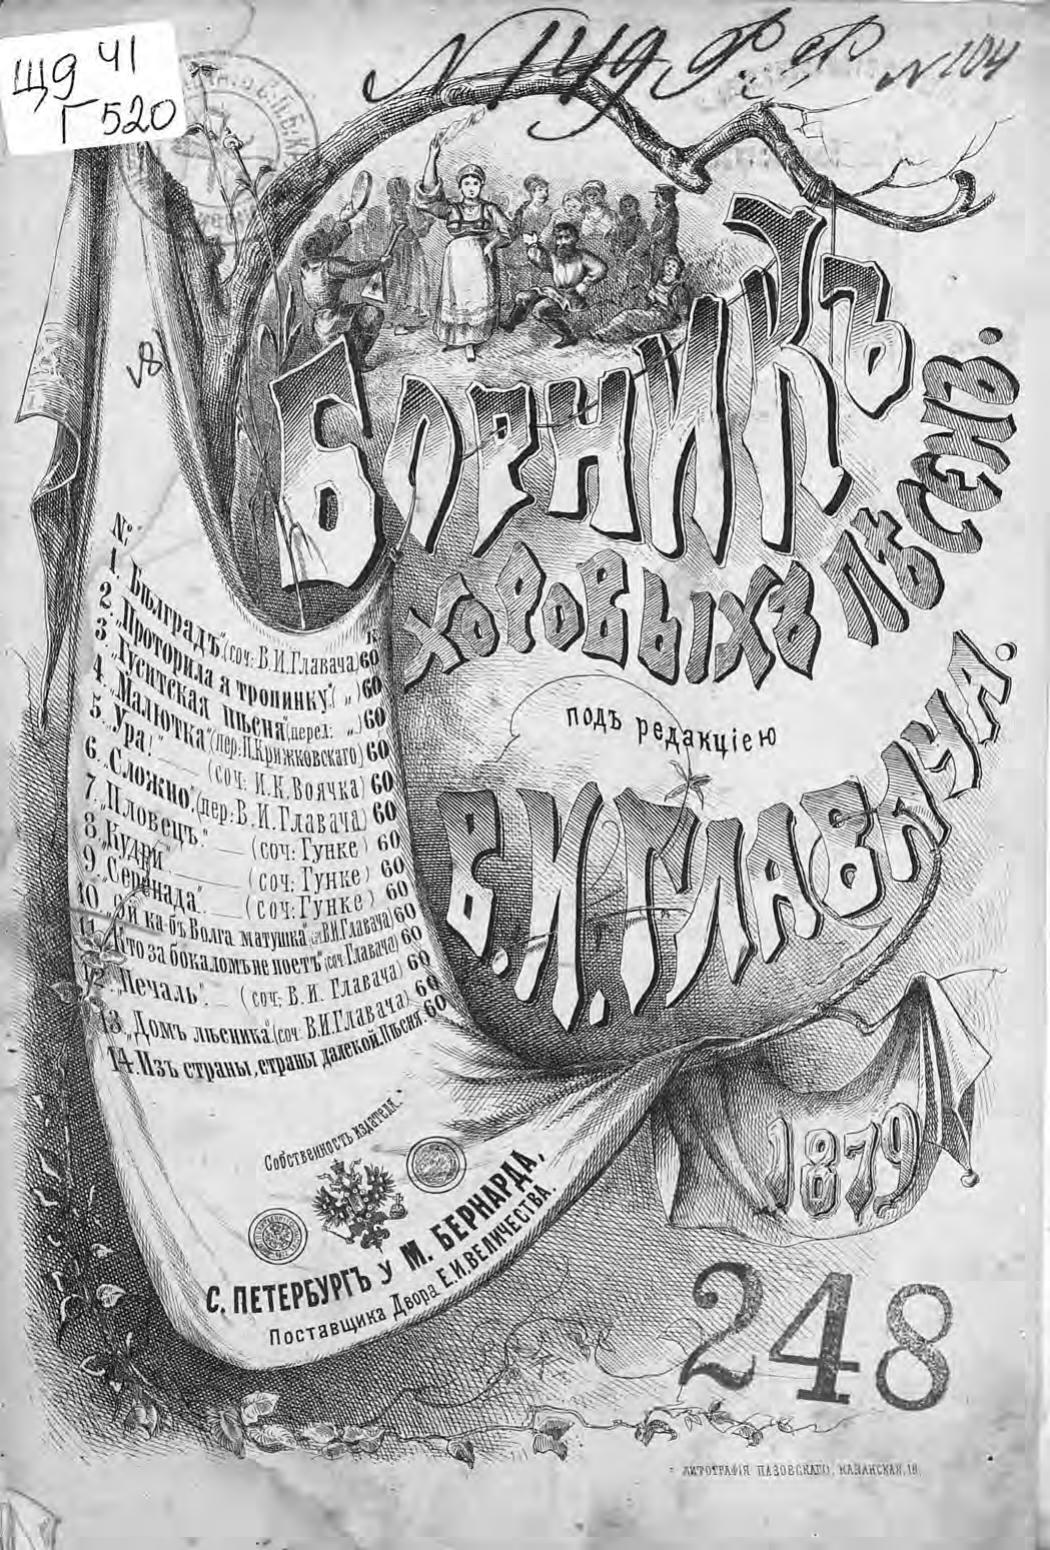 ЩД 41
Г 520
№ 104
Сборникъ
хоровыхъ пѣсенъ.
подъ редакціею
В.И. Главача.
№
к
1. „Бѣлградъ" (соч: В.И.Главача) 60
2. „Проторила я тропинку" ( „ ) 60
3. „Гуситская пѣсня" (перел: „ ) 60
4. „Малютка" (пер: П.Крижковскаго) 60
5. „Ура!" (соч: И.К.Воячка) 60
6. „Сложно". (пер: В.И.Главача) 60
7. „Пловецъ". (соч: Гунке) 60
8. „Кудри". (соч: Гунке) 60
9. „Серенада". (соч: Гунке) 60
10. „Эй ка-бъ Волга матушка" (соч: В.И.Главача) 60
11. „Кто за бокаломъ не поетъ" (соч: Главача) 60
12. „Печаль". (соч: В.И. Главача) 60
13. „Домъ лѣсника". (соч: В.И.Главача) 60
14. Изъ страны, страны далекой. Пѣсня. 60
Собственность издателя.
С. ПЕТЕРБУРГЪ У М. БЕРНАРДА,
Поставщика Двора Е.И.ВЕЛИЧЕСТВА.
1879
248
ЛИТОГРАФІЯ ПАЗОВСКАГО, КАЗАНСКАЯ, 18.